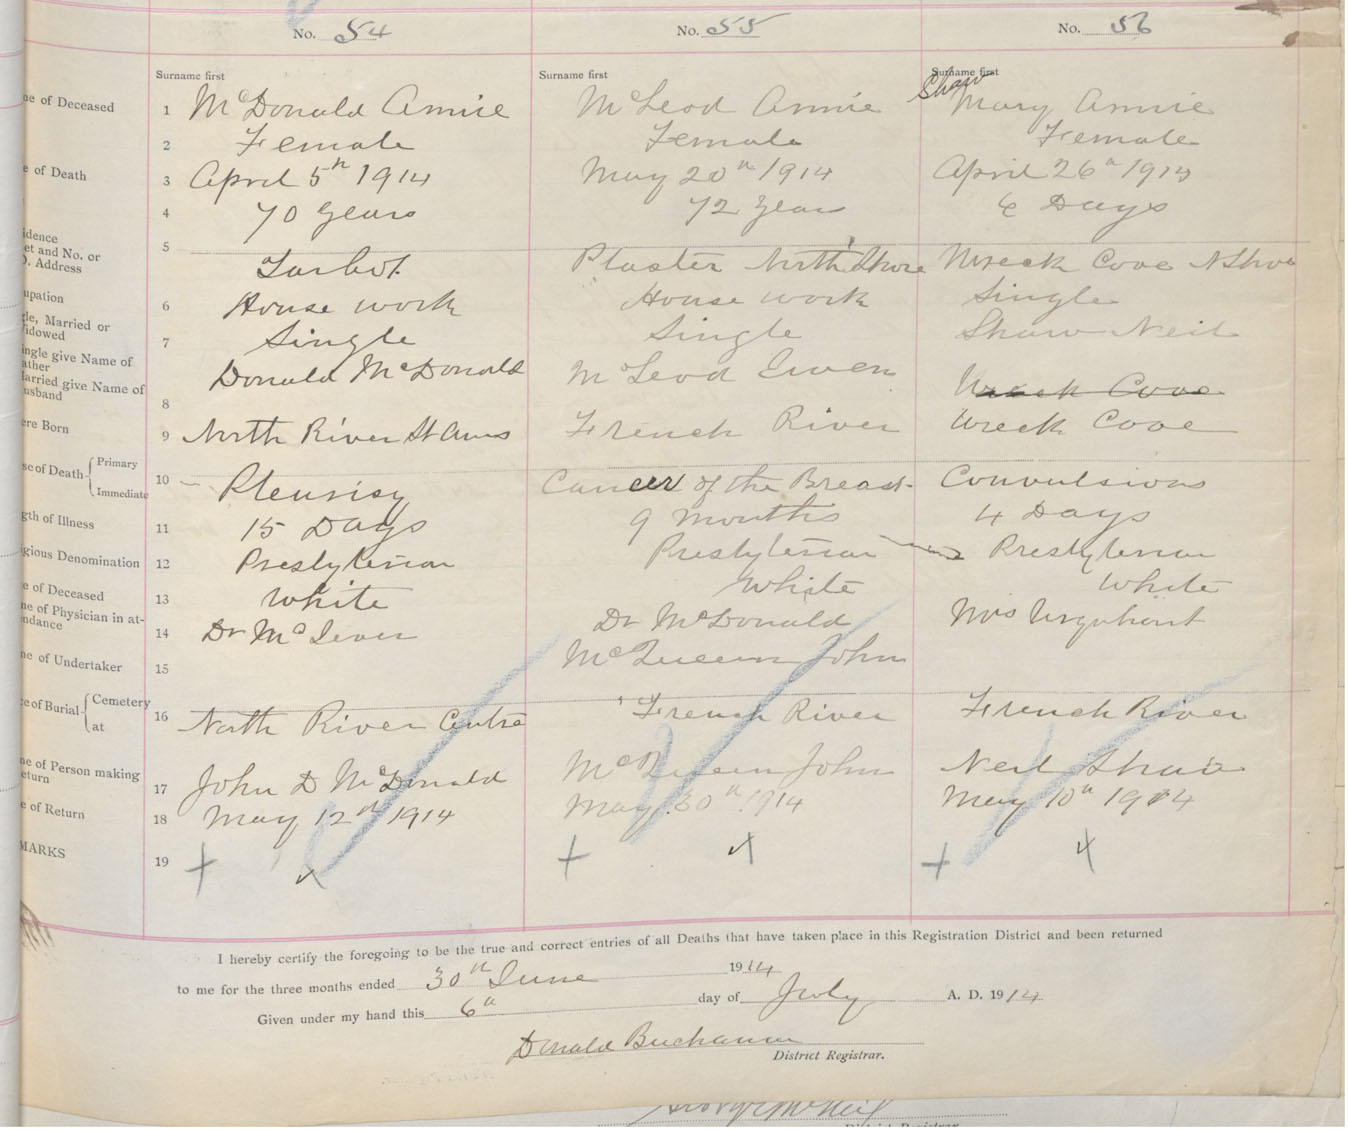 No. 54
No. 55
No. 56
Surname first
Surname first
Surname first
Shaw
ne of Deceased 1 McDonald Annie McLeod Annie Mary Annie
2 Female Female Female
e of Death 3 April 5th 1914 May 20th 1914 April 26th 1914
4 70 Years 72 Years 6 Days
5
idence
et and No. or
O. Address
Tarbot Plaster North Shore Wreck Cove N Shore
upation 6 House work House work Single
gle, Married or
idowed
7 Single Single Shaw Neil
ingle give Name of
ather
arried give Name of
usband
8 Donald McDonald McLeod Ewen Wreck Cove
ere Born 9 North River St Anns French River Wreck Cove
se of Death { Primary
Immediate
10 Pleurisy Cancer of the Breast Convulsions
gth of Illness 11 15 Days 9 Months 4 Days
gious Denomination 12 Presbyterian Presbyterian Presbyterian
e of Deceased 13 White White White
ne of Physician in at-
ndance
14 Dr McIver Dr McDonald Mrs Urquhart
ne of Undertaker 15 McQueen John
ce of Burial { Cemetery
at
16 North River Centre French River French River
ne of Person making
eturn
17 John D McDonald McQueen John Neil Shaw
e of Return 18 May 12th 1914 May 30th 1914 May 10th 1914
MARKS 19
I hereby certify the foregoing to be the true and correct entries of all Deaths that have taken place in this Registration District and been returned
to me for the three months ended 30th June 1914
Given under my hand this 6th day of July A. D. 1914
Donald Buchanan
District Registrar.
District Registrar.